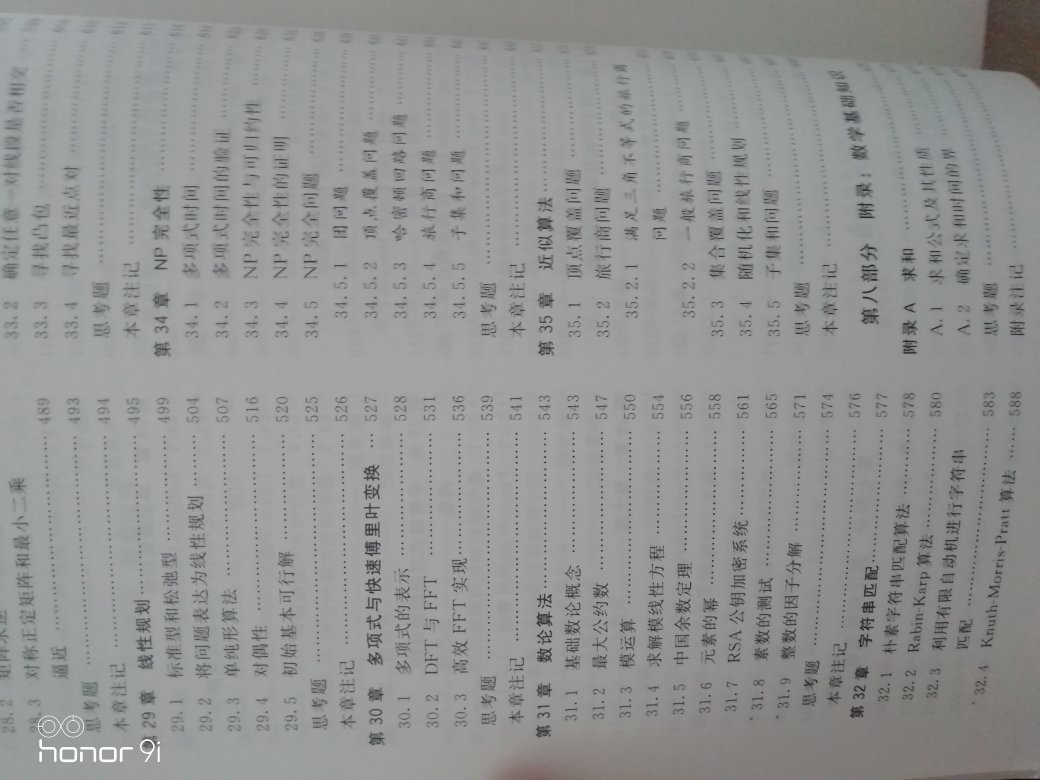 28.3 对称正定矩阵和最小二乘
逼近 …… 489
思考题 …… 493
本章注记 …… 494
第 29 章 线性规划 …… 495
29.1 标准型和松弛型 …… 499
29.2 将问题表达为线性规划 …… 504
29.3 单纯形算法 …… 507
29.4 对偶性 …… 516
29.5 初始基本可行解 …… 520
思考题 …… 525
本章注记 …… 526
第 30 章 多项式与快速傅里叶变换 …… 527
30.1 多项式的表示 …… 528
30.2 DFT 与 FFT …… 531
30.3 高效 FFT 实现 …… 536
思考题 …… 539
本章注记 …… 541
第 31 章 数论算法 …… 543
31.1 基础数论概念 …… 543
31.2 最大公约数 …… 547
31.3 模运算 …… 550
31.4 求解模线性方程 …… 554
31.5 中国余数定理 …… 556
31.6 元素的幂 …… 558
31.7 RSA 公钥加密系统 …… 561
*31.8 素数的测试 …… 565
*31.9 整数的因子分解 …… 571
思考题 …… 574
本章注记 …… 576
第 32 章 字符串匹配 …… 577
32.1 朴素字符串匹配算法 …… 578
32.2 Rabin-Karp 算法 …… 580
32.3 利用有限自动机进行字符串
匹配 …… 583
*32.4 Knuth-Morris-Pratt 算法 …… 588
33.2 确定任意一对线段是否相交
33.3 寻找凸包 ……
33.4 寻找最近点对 ……
思考题 ……
本章注记 ……
第 34 章 NP 完全性 ……
34.1 多项式时间 ……
34.2 多项式时间的验证 ……
34.3 NP 完全性与可归约性
34.4 NP 完全性的证明 ……
34.5 NP 完全问题 ……
34.5.1 团问题 ……
34.5.2 顶点覆盖问题 ……
34.5.3 哈密顿回路问题 ……
34.5.4 旅行商问题 ……
34.5.5 子集和问题 ……
思考题 ……
本章注记 ……
第 35 章 近似算法 ……
35.1 顶点覆盖问题 ……
35.2 旅行商问题 ……
35.2.1 满足三角不等式的旅行商
问题 ……
35.2.2 一般旅行商问题 ……
35.3 集合覆盖问题 ……
35.4 随机化和线性规划 ……
35.5 子集和问题 ……
思考题 ……
本章注记 ……
第八部分 附录：数学基础知识
附录 A 求和 ……
A.1 求和公式及其性质 ……
A.2 确定求和时间的界 ……
思考题 ……
附录注记 ……
honor 9i